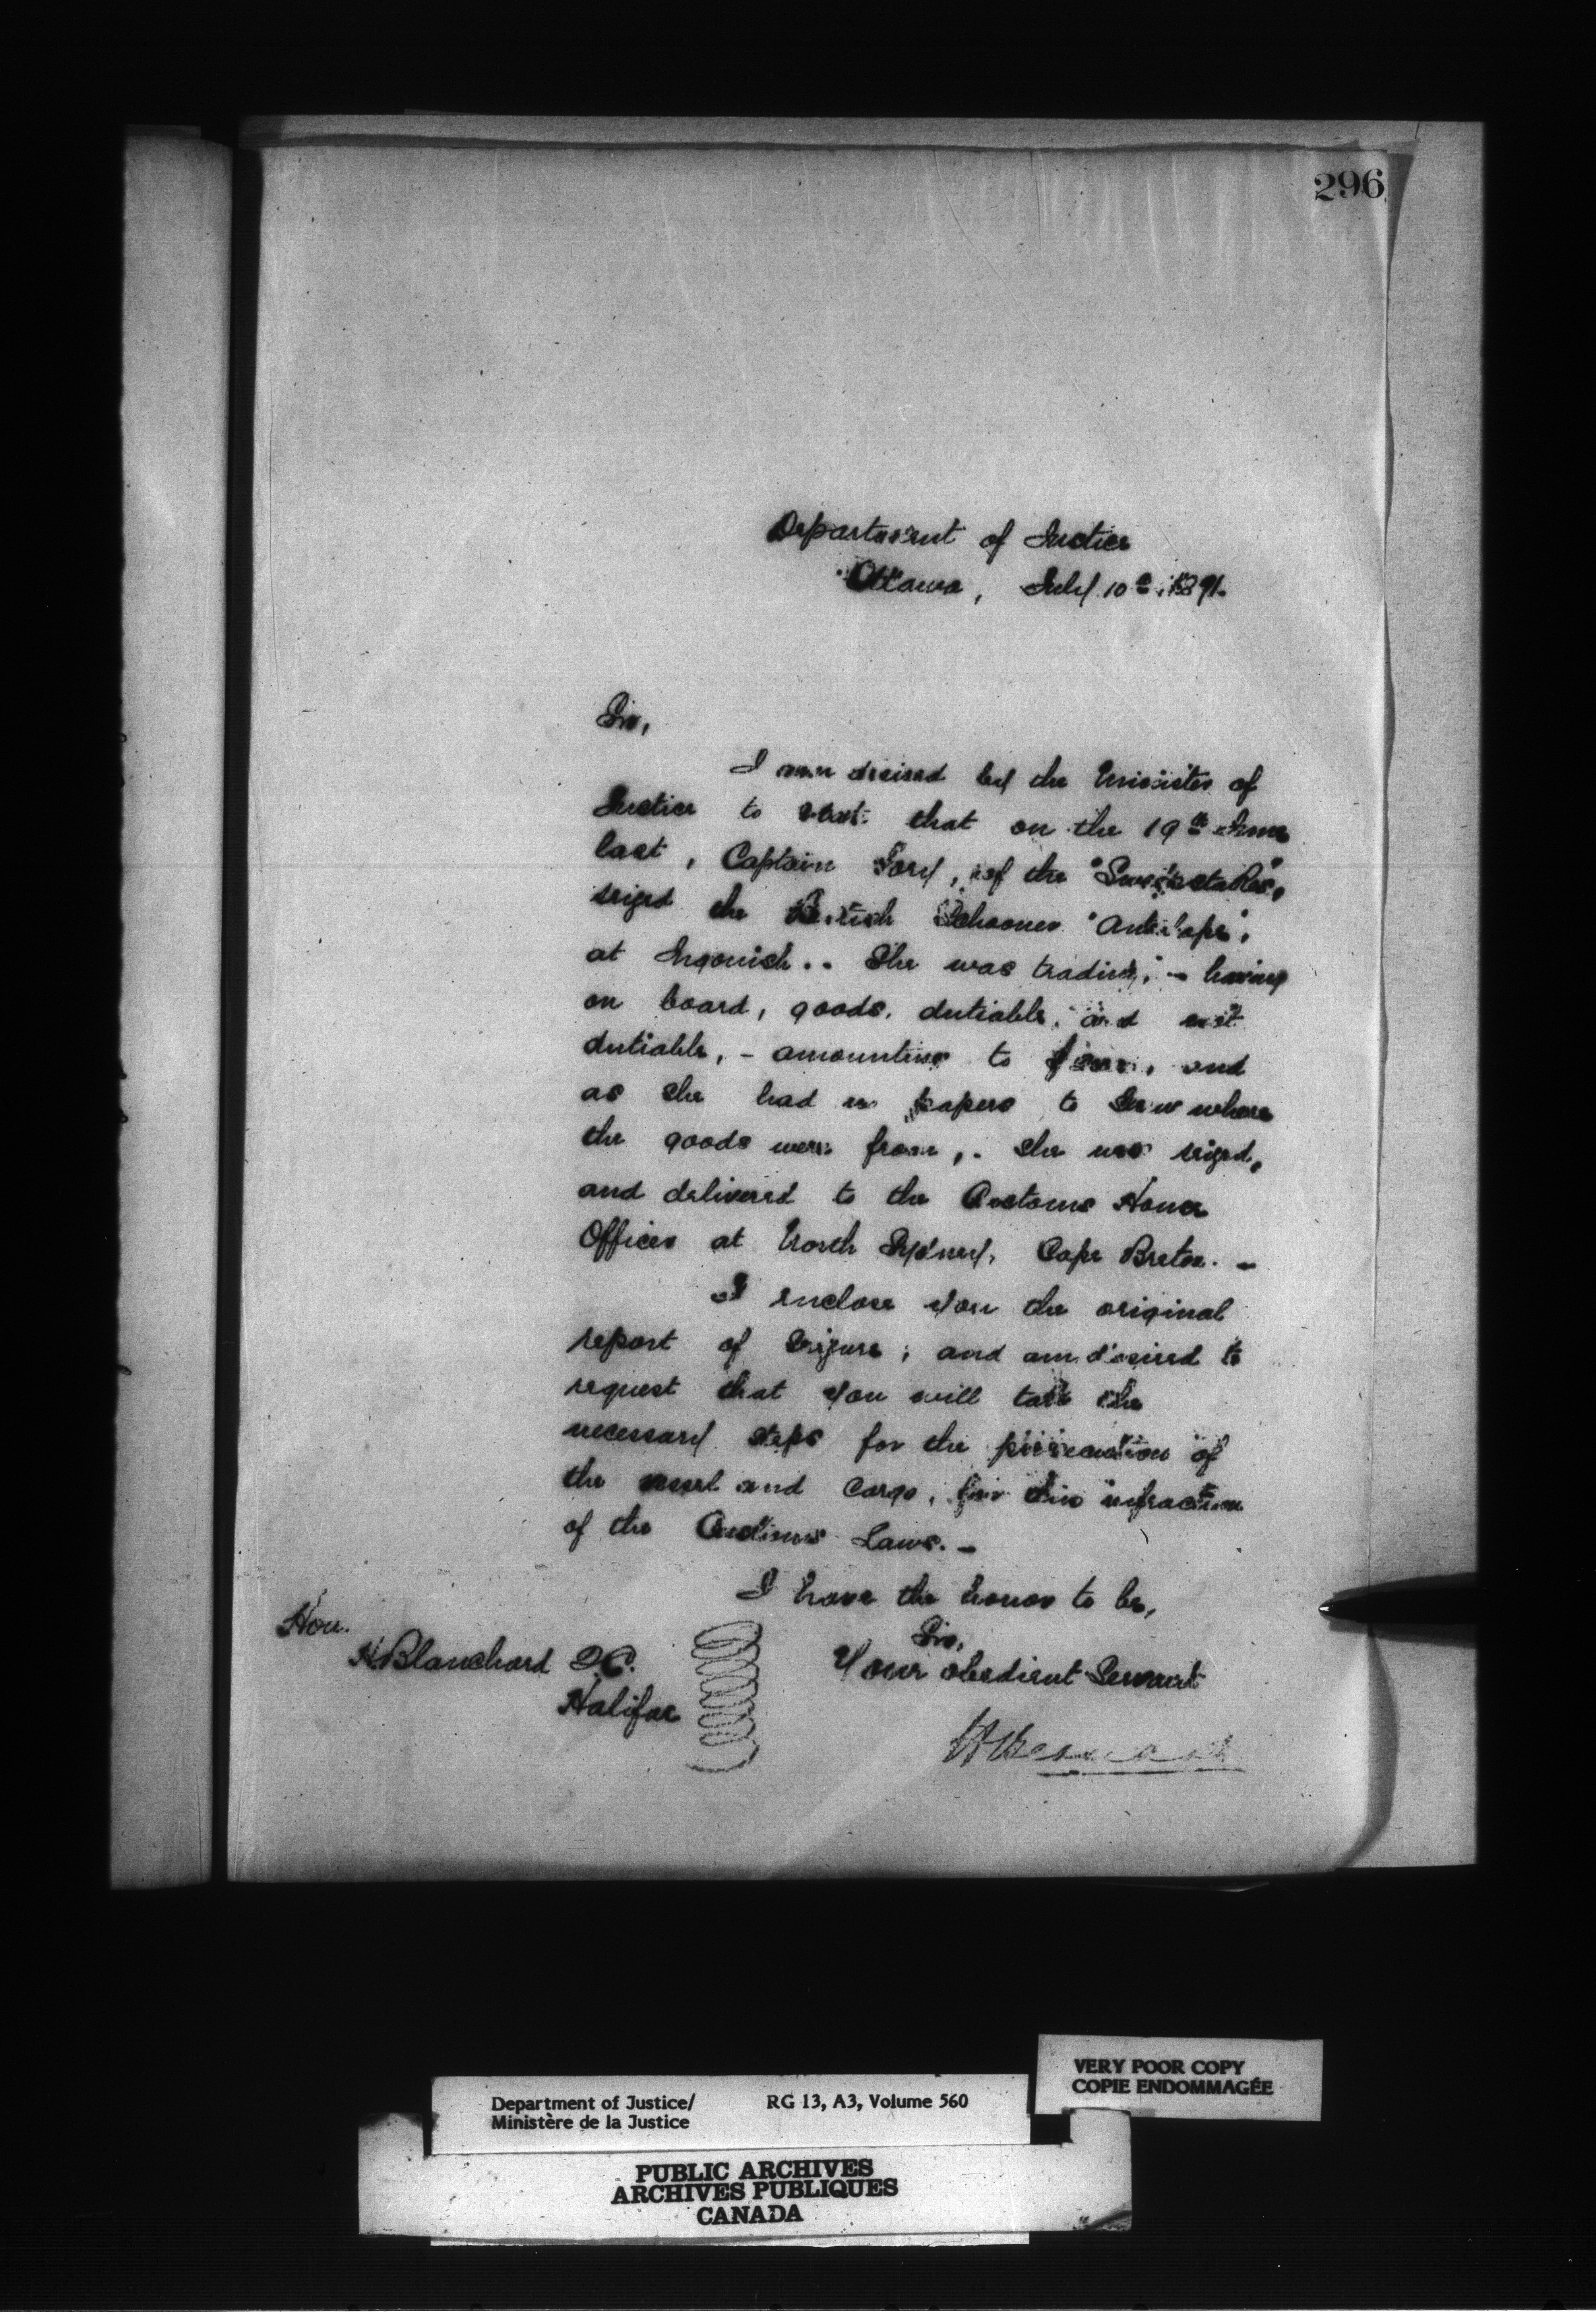 296
Department of Justice
Ottawa, July 10th, 1871.
Sir,
I am desired by the Minister of
Justice to state that on the 19th June
last, Captain Tory, of the "Sweepstakes",
seized the British Schooner "Antelope",
at Ingonish.. She was trading, - having
on board, goods, dutiable, and not
dutiable, - amounting to and
as she had no papers to show where
the goods were from, . She was seized,
and delivered to the Customs House
Officer at North Sydney, Cape Breton. -
I enclose you the original
report of Seizure; and am desired to
request that you will take the
necessary steps for the prosecution of
the vessel and Cargo, for this infraction
of the Customs Laws. -
I have the honor to be,
Sir,
Your obedient Servant
Hon.
H. Blanchard Q.C.
Halifax
VERY POOR COPY
COPIE ENDOMMAGÉE
Department of Justice/ RG 13, A3, Volume 560
Ministère de la Justice
PUBLIC ARCHIVES
ARCHIVES PUBLIQUES
CANADA